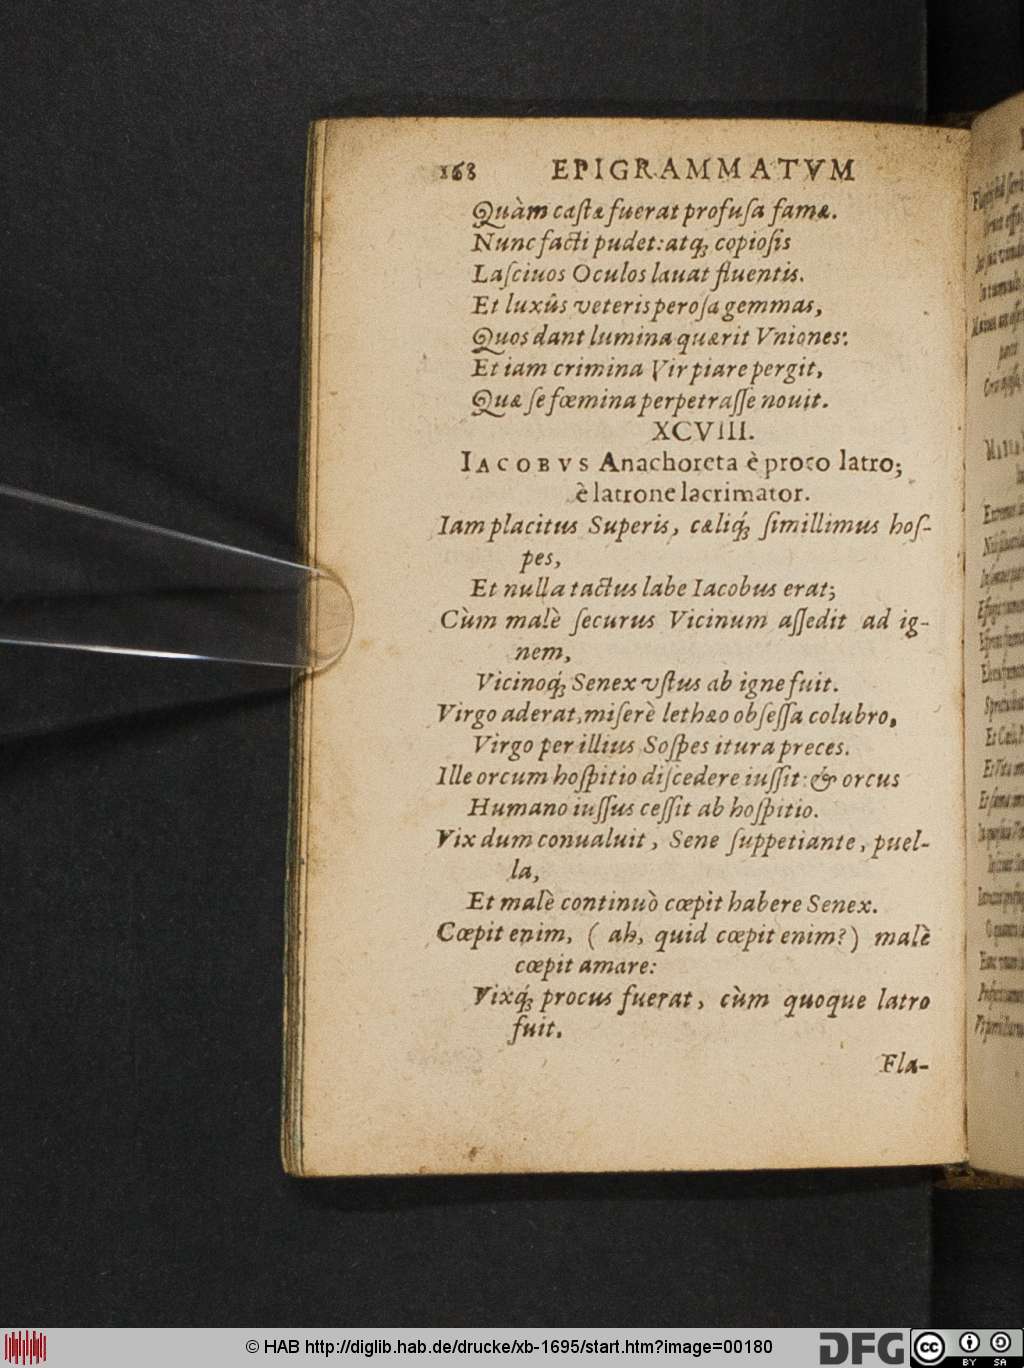 168 EPIGRAMMATVM
Quàm castæ fuerat profusa famæ.
Nunc facti pudet: atq; copiosis
Lasciuos Oculos lauat fluentis.
Et luxûs veteris perosa gemmas,
Quos dant lumina quærit Vniones:
Et iam crimina Vir piare pergit,
Quæ se fœmina perpetrasse nouit.
XCVIII.
IACOBVS Anachoreta è proco latro;
è latrone lacrimator.
Iam placitus Superis, cæliq́; simillimus hos-
pes,
Et nulla tactus labe Iacobus erat;
Cùm malè securus Vicinum assedit ad ig-
nem,
Vicinoq́; Senex vstus ab igne fuit.
Virgo aderat, miserè lethæo obsessa colubro,
Virgo per illius Sospes itura preces.
Ille orcum hospitio discedere iussit: & orcus
Humano iussus cessit ab hospitio.
Vix dum conualuit, Sene suppetiante, puel-
la,
Et malè continuò cœpit habere Senex.
Cœpit enim, ( ah, quid cœpit enim?) malè
cœpit amare:
Vixq́; procus fuerat, cùm quoque latro
fuit.
Fla-
© HAB http://diglib.hab.de/drucke/xb-1695/start.htm?image=00180
DFG
cc
BY SA